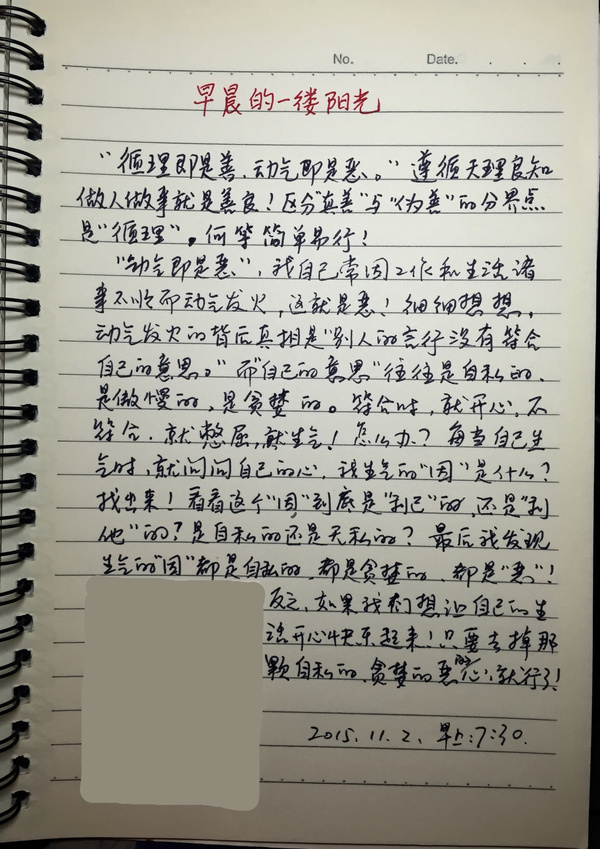 No.
Date.
早晨的一缕阳光
“循理即是善，动气即是恶。”遵循天理良知
做人做事就是善良！区分“真善”与“伪善”的分界点
是“循理”。何等简单易行！
“动气即是恶”，我自己常因工作和生活诸
事不顺而动气发火，这就是恶！细细想想，
动气发火的背后真相是“别人的言行没有符合
自己的意思。”而“自己的意思”往往是自私的、
是傲慢的，是贪婪的。符合时，就开心，不
符合，就憋屈，就生气！怎么办？每当自己生
气时，就问问自己的心，我生气的“因”是什么？
找出来！看看这个“因”到底是“利己”的，还是“利
他”的？是自私的还是无私的？最后我发现
生气的“因”都是自私的，都是贪婪的，都是“恶”！
反之，如果我们想让自己的生
活开心快乐起来！只要去掉那
颗自私的、贪婪的恶的心，就行了！
2015.11.2、早上:7:30.